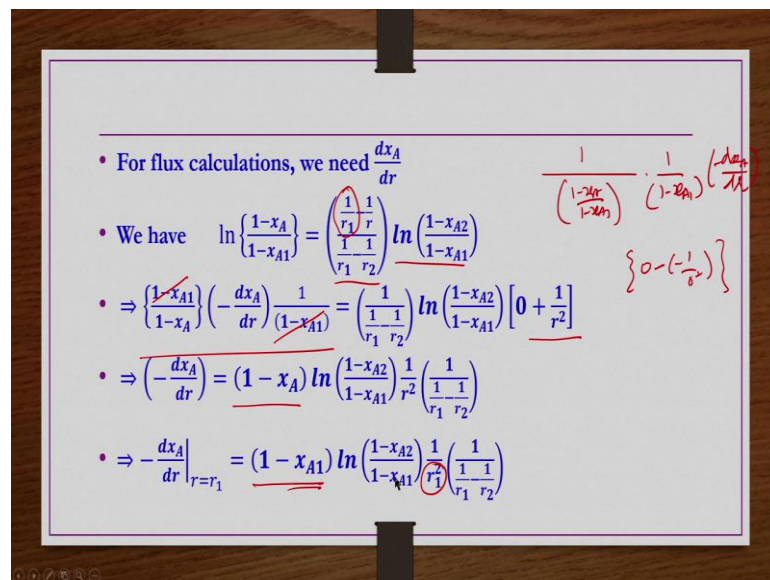 • For flux calculations, we need dx_A/dr
• We have ln{(1−x_A)/(1−x_A1)} = ((1/r_1 − 1/r)/(1/r_1 − 1/r_2)) ln((1−x_A2)/(1−x_A1))
• ⇒ {(1−x_A1)/(1−x_A)} (−dx_A/dr) 1/(1−x_A1) = (1/(1/r_1 − 1/r_2)) ln((1−x_A2)/(1−x_A1)) [0 + 1/r²]
• ⇒ (−dx_A/dr) = (1 − x_A) ln((1−x_A2)/(1−x_A1)) 1/r² (1/(1/r_1 − 1/r_2))
• ⇒ −dx_A/dr|_{r=r_1} = (1 − x_A1) ln((1−x_A2)/(1−x_A1)) 1/r_1² (1/(1/r_1 − 1/r_2))
1/((1−x_A)/(1−x_A1)) · 1/(1−x_A1) (−dx_A/dr)
{0 − (−1/r²)}